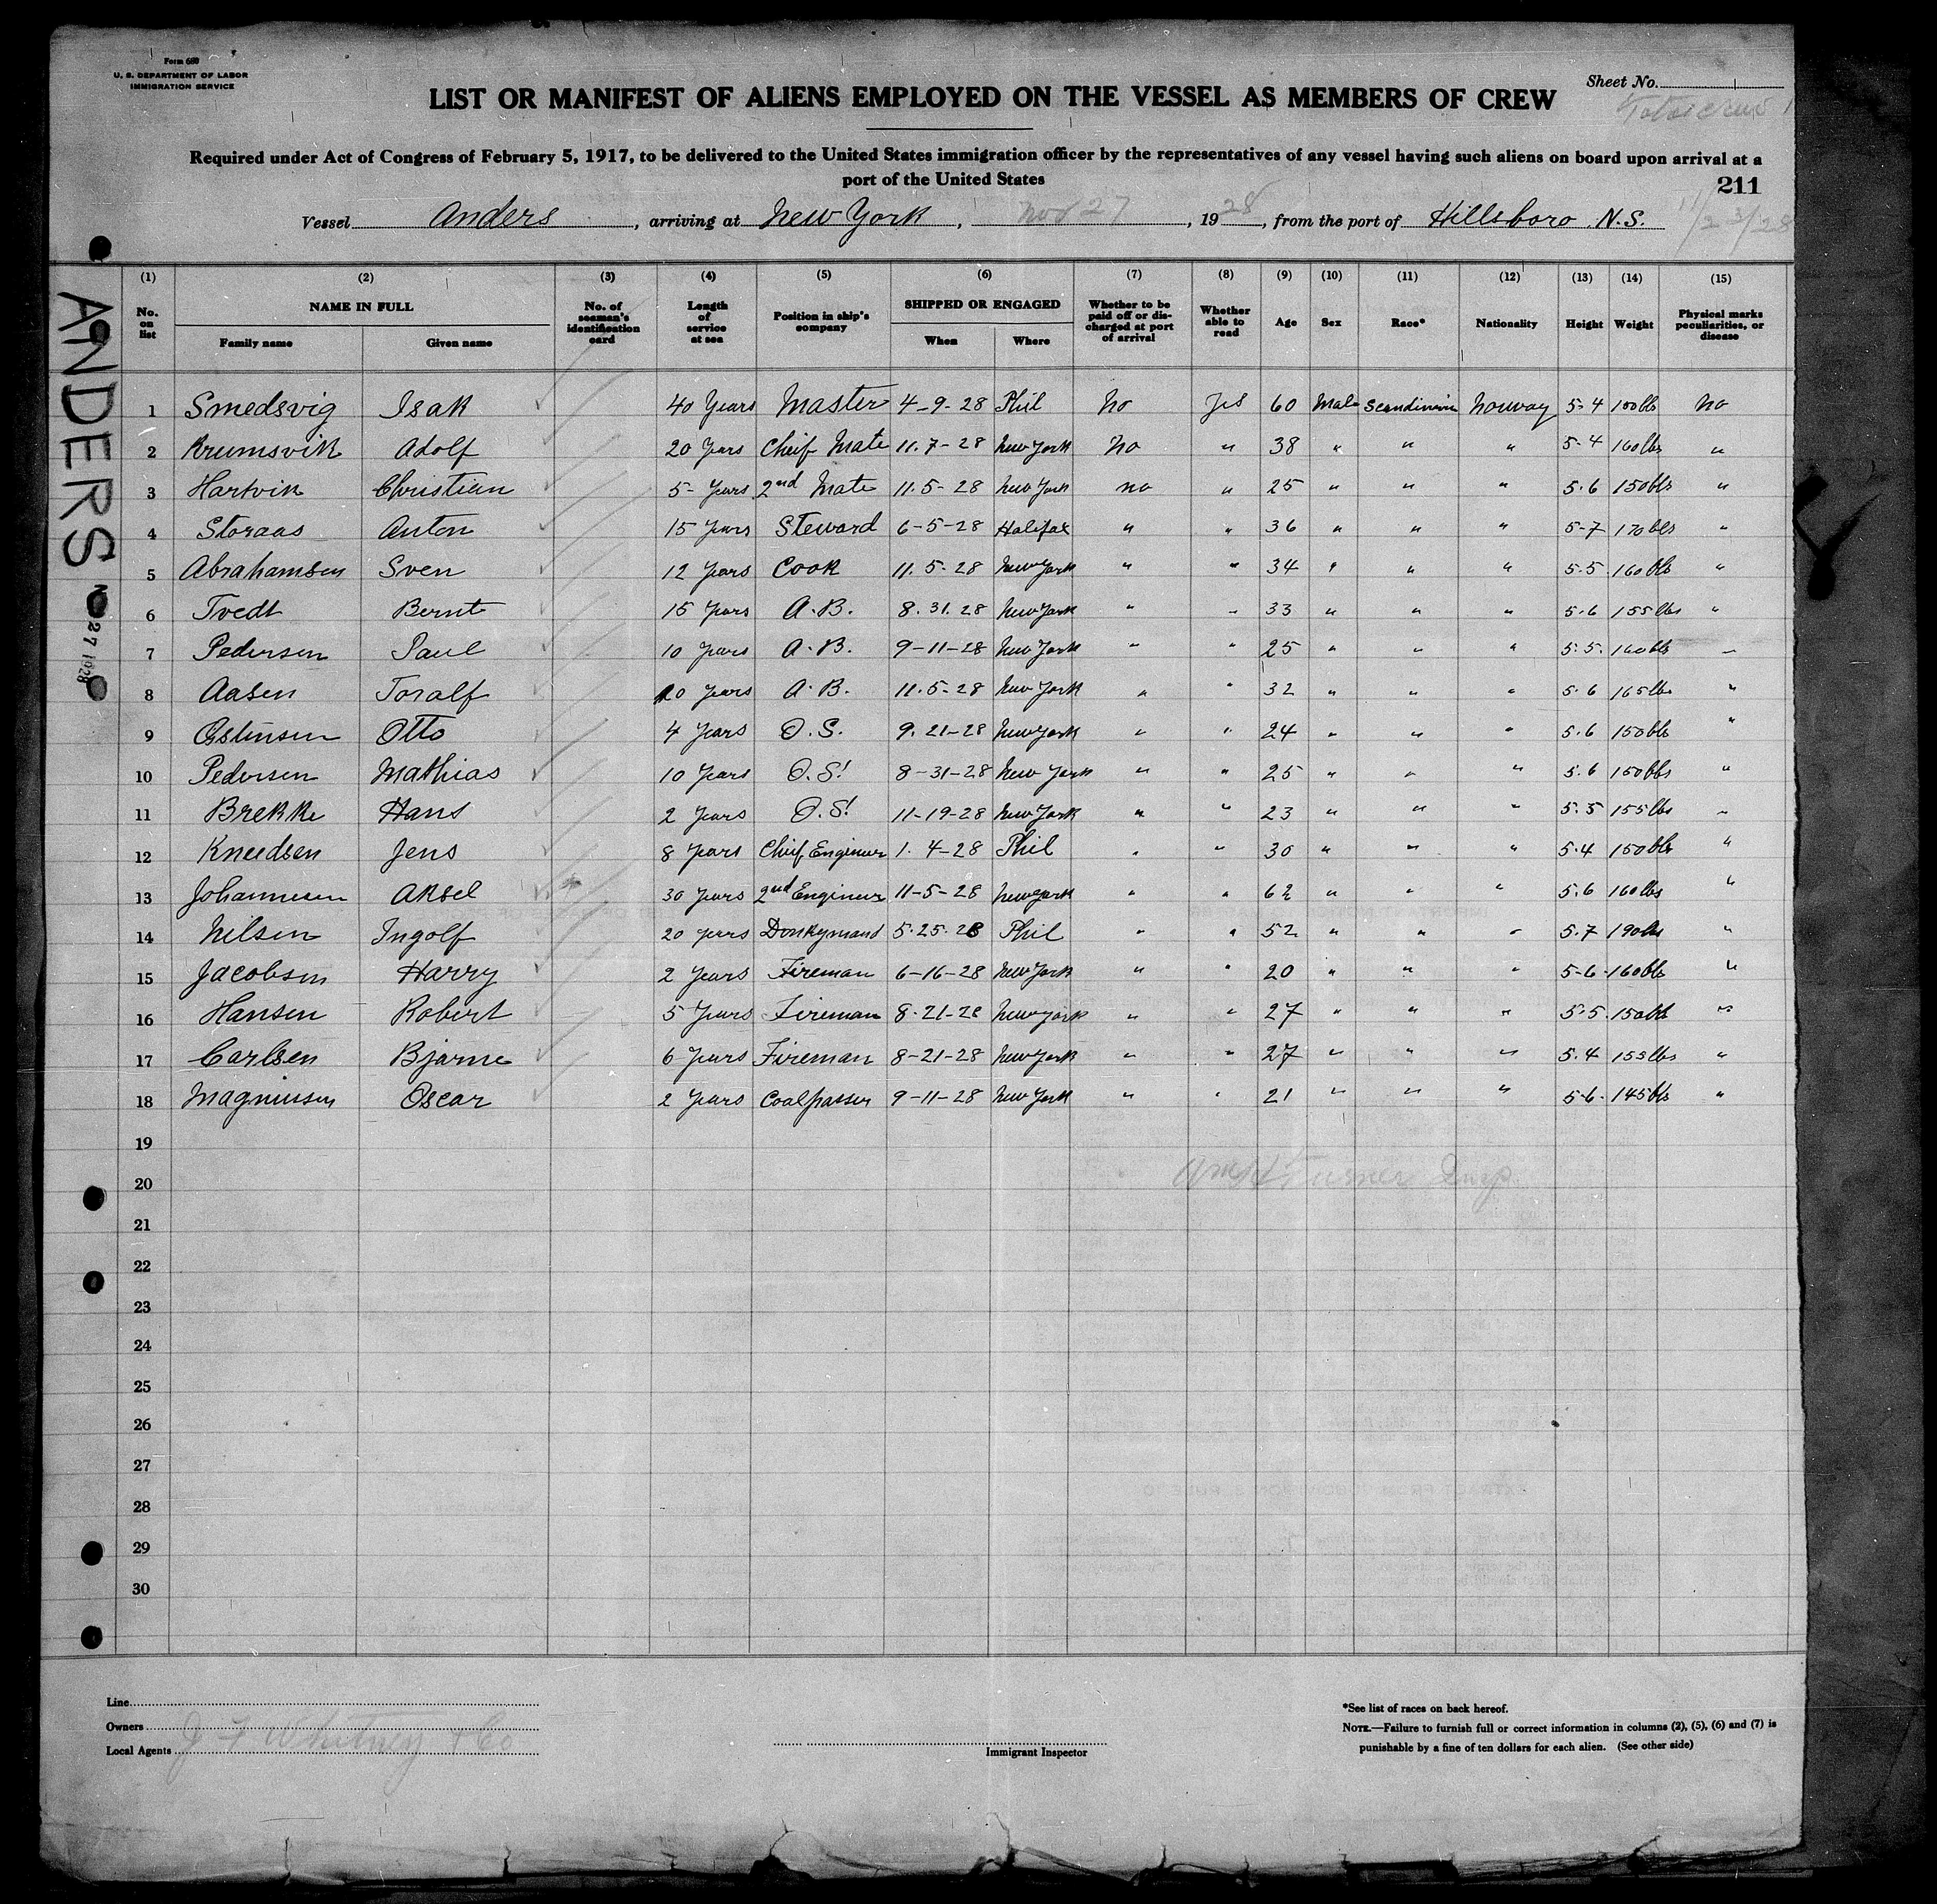 Form 680
U. S. DEPARTMENT OF LABOR
IMMIGRATION SERVICE
Sheet No.
LIST OR MANIFEST OF ALIENS EMPLOYED ON THE VESSEL AS MEMBERS OF CREW
Total crew
Required under Act of Congress of February 5, 1917, to be delivered to the United States immigration officer by the representatives of any vessel having such aliens on board upon arrival at a
port of the United States
211
Vessel Anders, arriving at New York, Nov 27, 1928, from the port of Hillsboro N.S.
ANDERS
27 1928
(1) (2) (3) (4) (5) (6) (7) (8) (9) (10) (11) (12) (13) (14) (15)
No. on list NAME IN FULL Family name Given name No. of seaman's identification card Length of service at sea Position in ship's company SHIPPED OR ENGAGED When Where Whether to be paid off or discharged at port of arrival Whether able to read Age Sex Race* Nationality Height Weight Physical marks peculiarities, or disease
1 Smedsvig Isak 40 Years Master 4-9-28 Phil No Yes 60 Male Scandinavian Norway 5-4 No
2 Krumsvik Adolf 20 Years Cheif Mate 11.7-28 New York No " 38 " " " 5-4 160 lbs "
3 Hartvik Christian 5- Years 2nd Mate 11.5-28 New York no " 25 " " " 5.6 150 lbs "
4 Storaas Anton 15 Years Steward 6-5-28 Halifax " " 36 " " " 5-7 170 lbs "
5 Abrahamsen Sven 12 Years Cook 11.5-28 New York " " 34 " " " 5.5 160 lbs "
6 Tvedt Bernt 15 Years A.B. 8.31.28 New York " " 33 " " " 5.6 155 lbs "
7 Pedersen Paul 10 Years A.B. 9-11-28 New York " " 25 " " " 5.5. 160 lbs "
8 Aasen Toralf 10 Years A.B. 11.5-28 New York " " 32 " " " 5.6 165 lbs "
9 Ostensen Otto 4 Years O.S. 9.21-28 New York " " 24 " " " 5.6 150 lbs "
10 Pedersen Mathias 10 Years O.S. 8-31-28 New York " " 25 " " " 5.6 150 lbs "
11 Brekke Hans 2 Years O.S. 11-19-28 New York " " 23 " " " 5.5 155 lbs "
12 Knudsen Jens 8 Years Chief Engineer 1.4-28 Phil " " 30 " " " 5.4 150 lbs "
13 Johannesen Aksel 30 Years 2nd Engineer 11-5-28 New York " " 62 " " " 5.6 160 lbs "
14 Nilsen Ingolf 20 years Donkymand 5.25.28 Phil " " 52 " " " 5.7 190 lbs "
15 Jacobsen Harry 2 Years Fireman 6-16-28 New York " " 20 " " " 5-6 160 lbs "
16 Hansen Robert 5 Years Fireman 8-21-28 New York " " 27 " " " 5.5. 150 lbs "
17 Carlsen Bjarne 6 Years Fireman 8-21-28 New York " " 27 " " " 5.4 155 lbs "
18 Magnussen Oscar 2 Years Coalpasser 9-11-28 New York " " 21 " " " 5-6. 145 lbs "
19
20 Turner Insp.
21
22
23
24
25
26
27
28
29
30
Line
Owners
Local Agents J F Whitney & Co
Immigrant Inspector
*See list of races on back hereof.
NOTE.—Failure to furnish full or correct information in columns (2), (5), (6) and (7) is
punishable by a fine of ten dollars for each alien. (See other side)